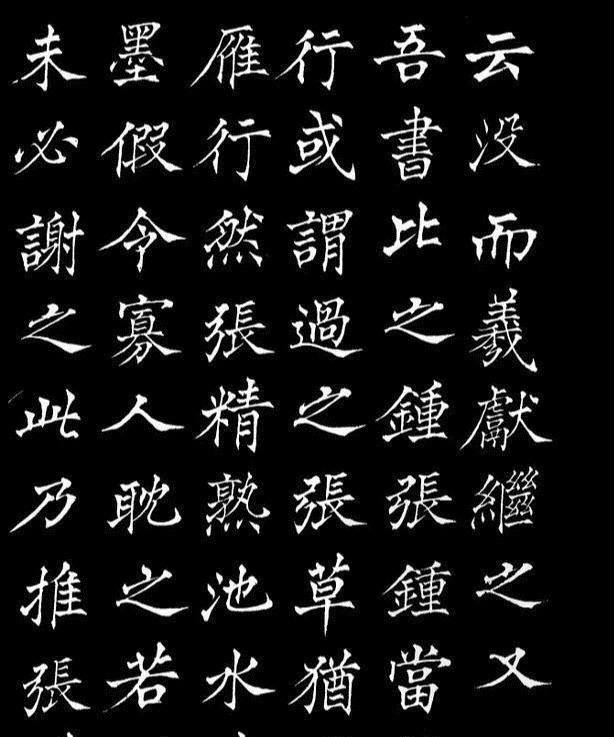 云没而羲獻繼之又
吾書比之鍾張鍾當
行或謂過之張草猶
雁行然張精熟池水
墨假令寡人耽之若
未必謝之此乃推張